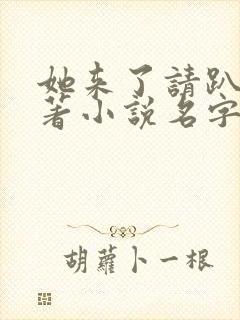 她来了請趴
著小説名字
胡蘿卜一根